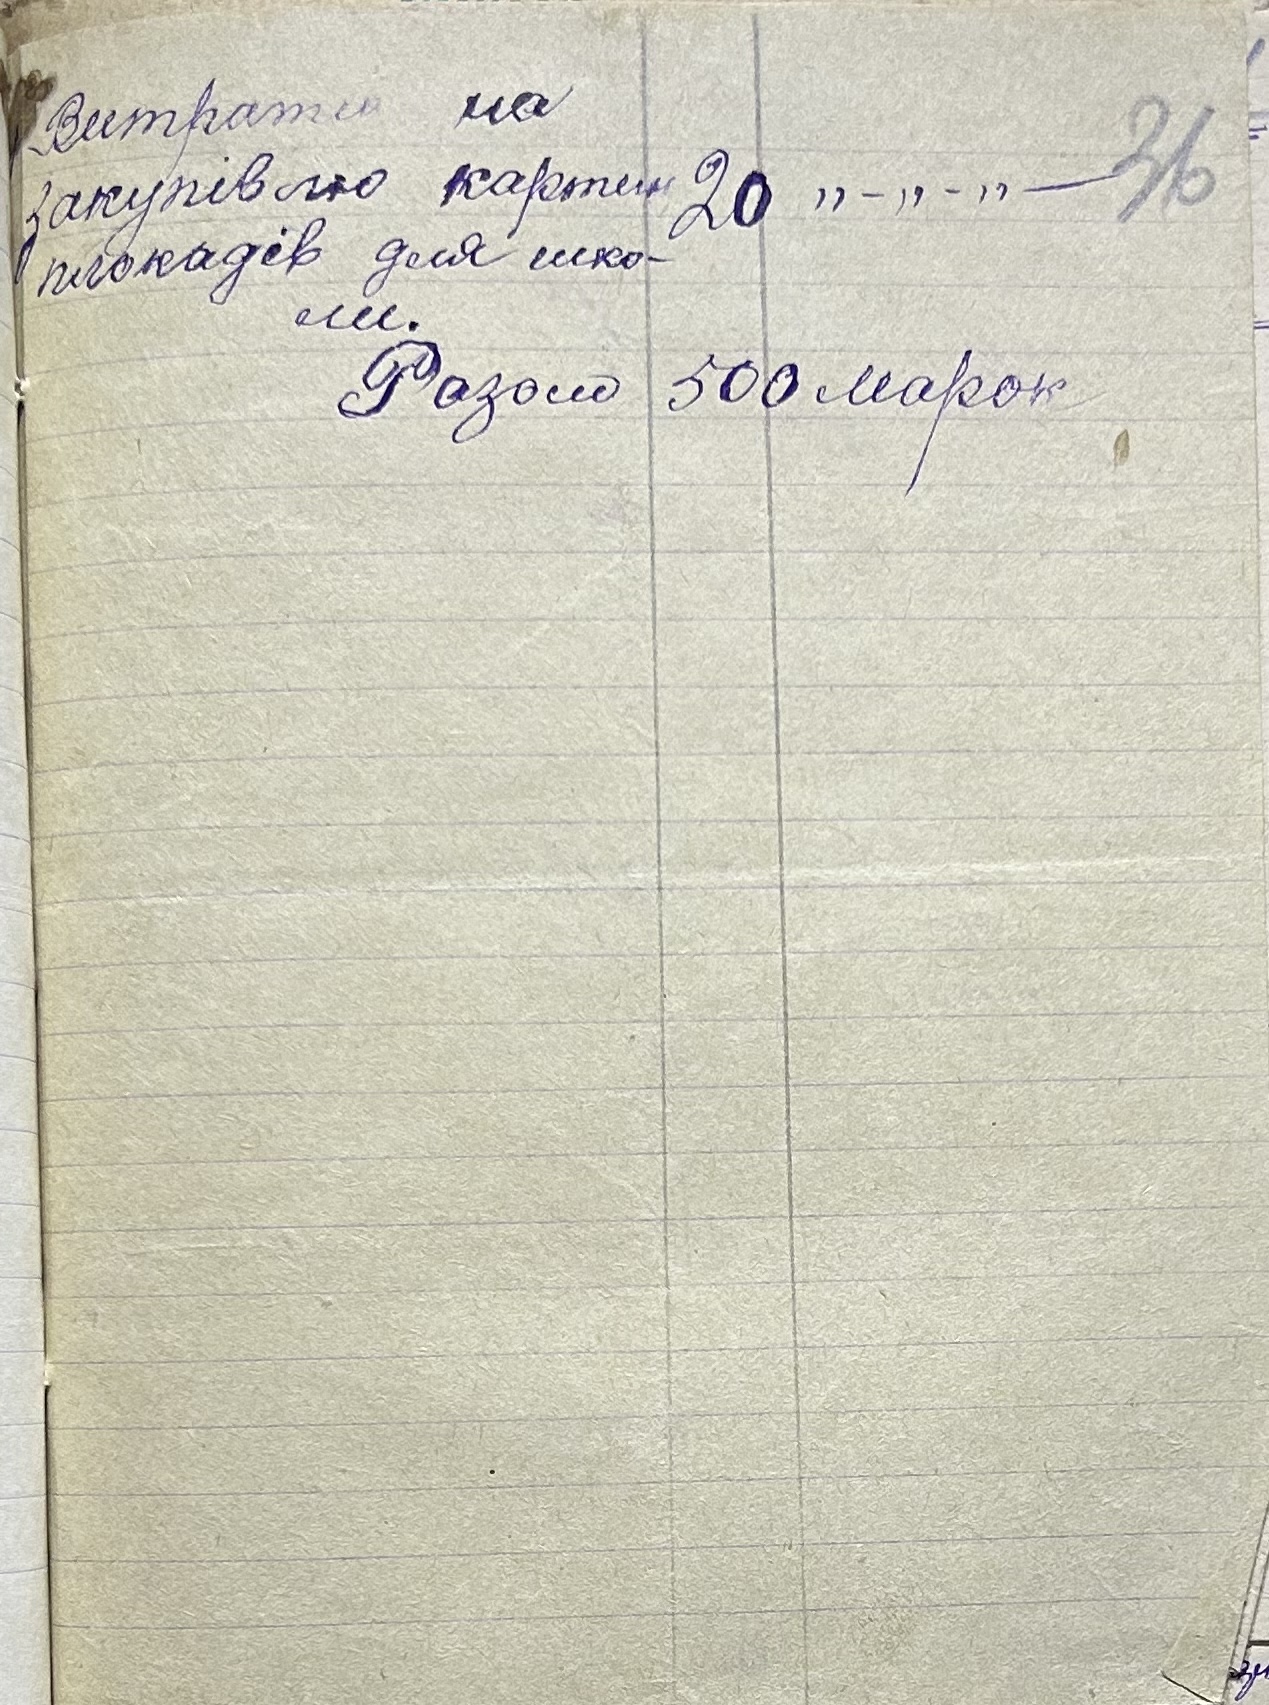 36
Витрати на
закупівлю картин 20 „ - „ - „ —
плокадів для шко-
ли.
Разом 500 марок